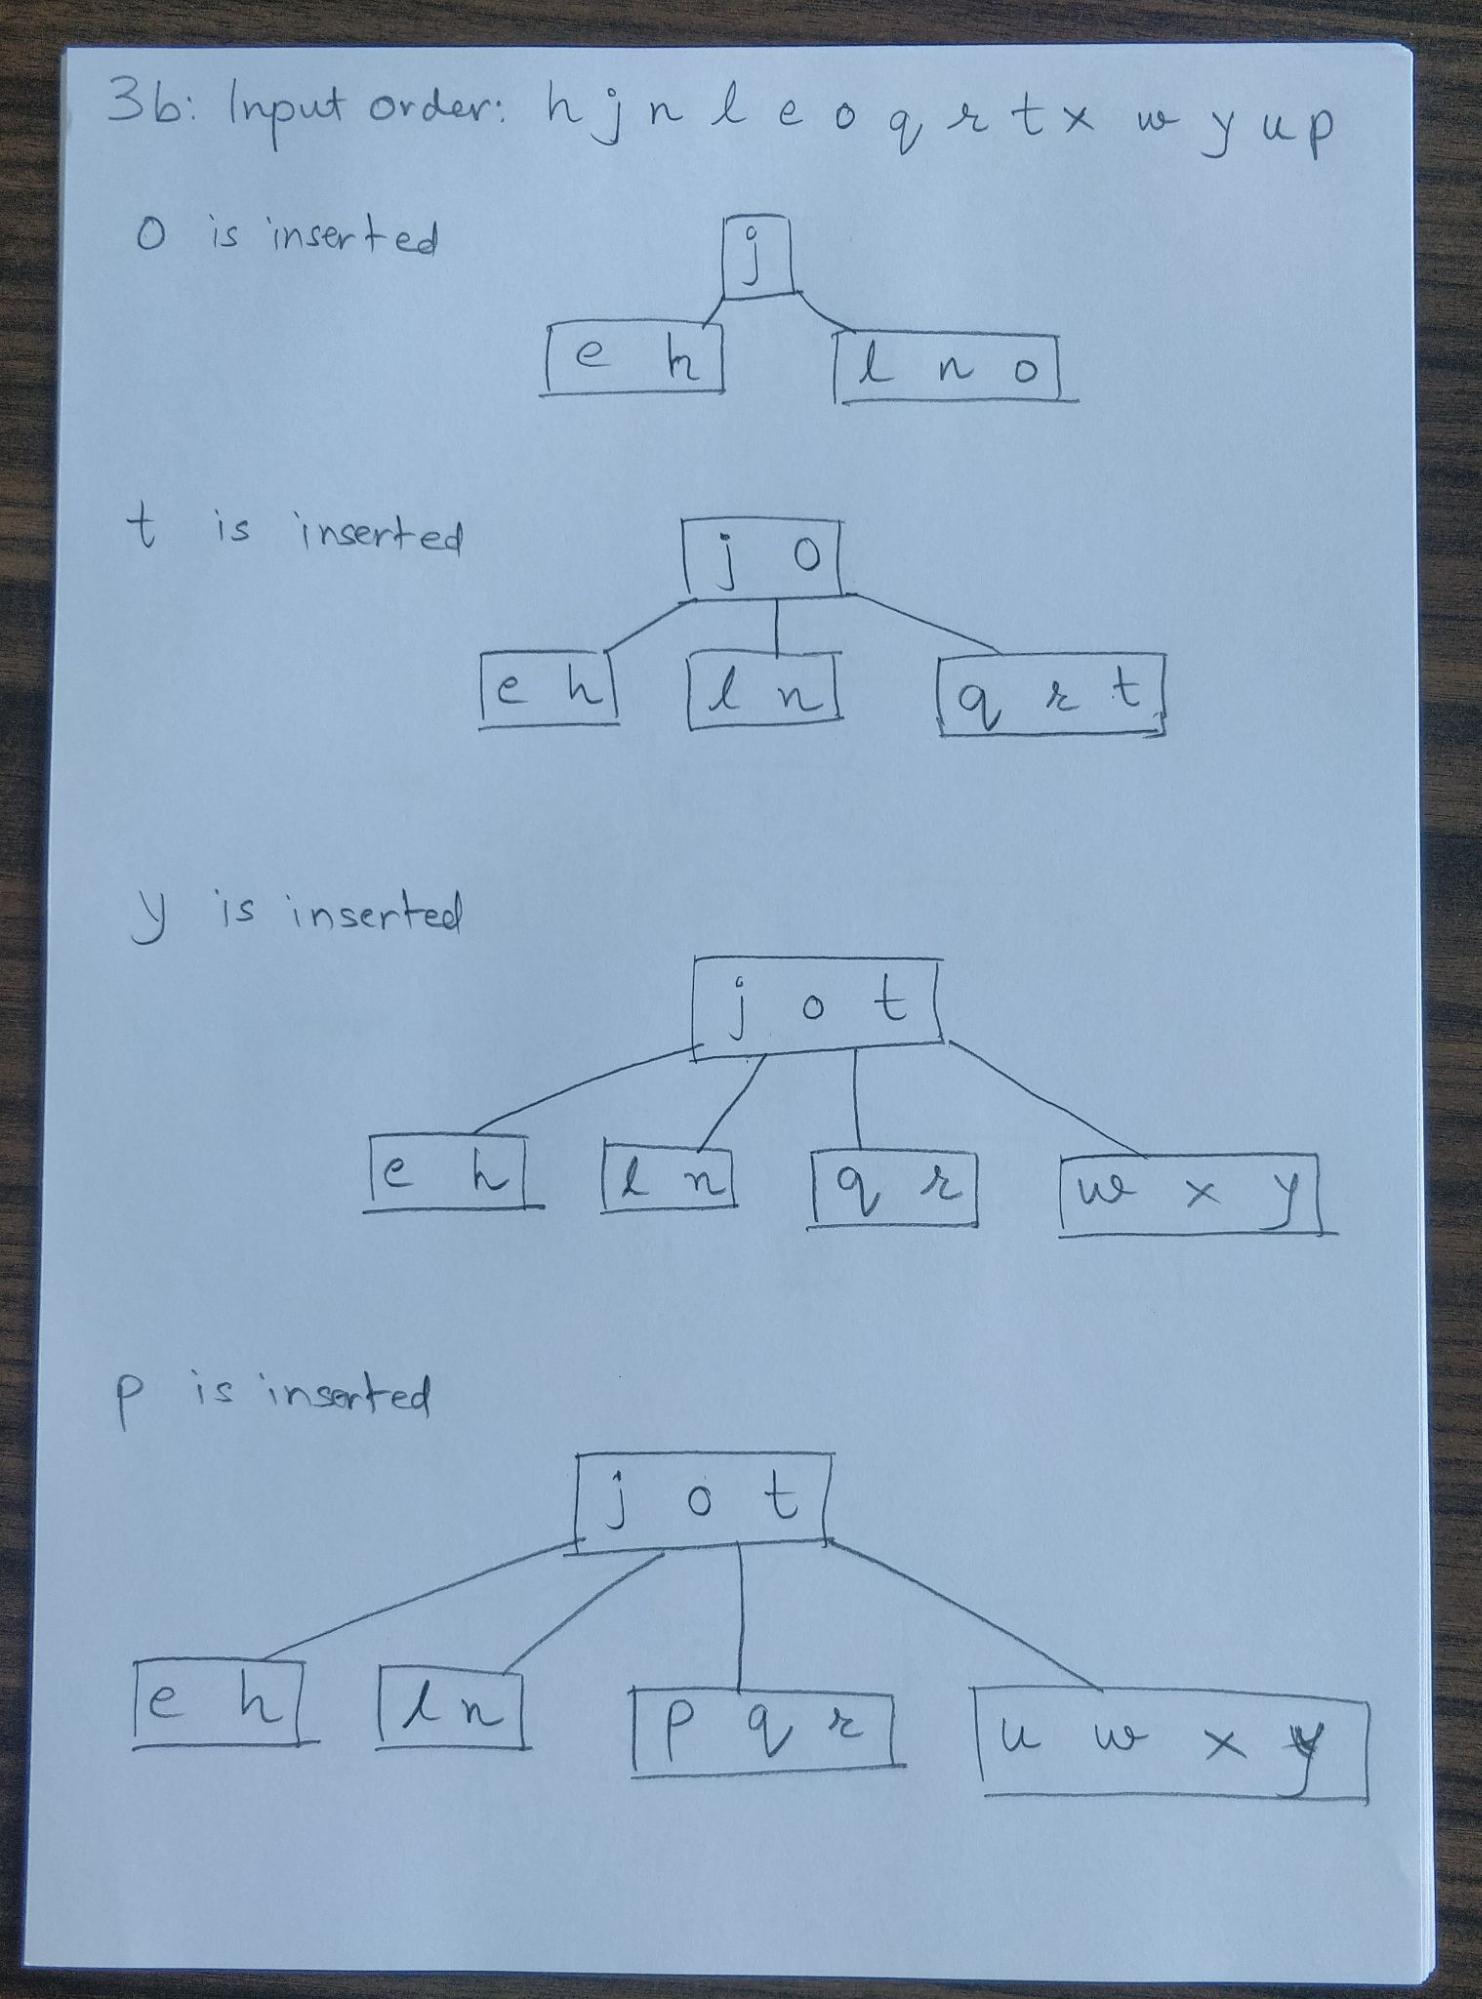 3b: Input order: h j n l e o q r t x w y u p
o is inserted
j
e h l n o
t is inserted
j o
e h l n q r t
y is inserted
j o t
e h l n q r w x y
p is inserted
j o t
e h l n p q r u w x y